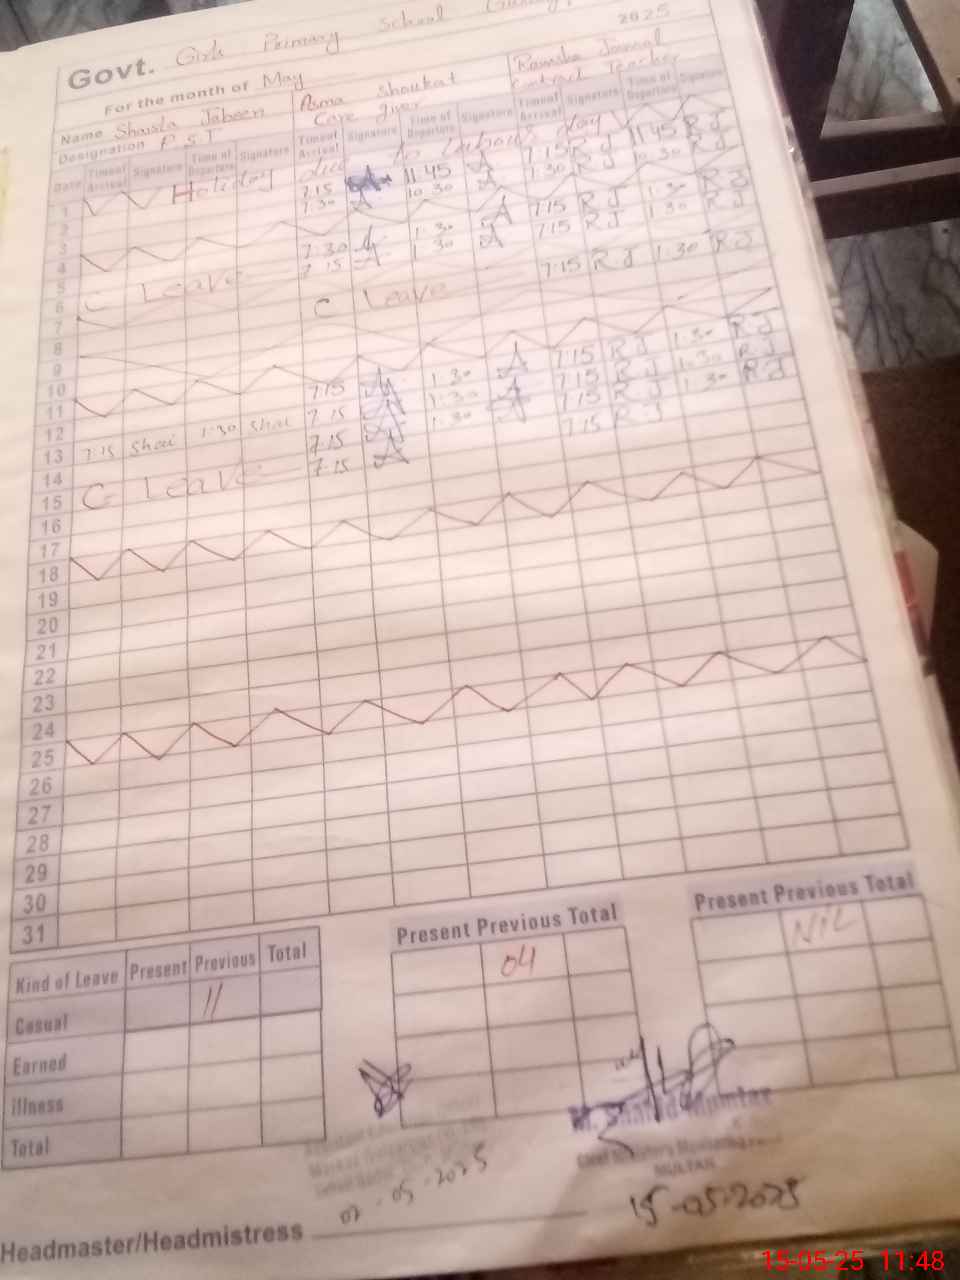 Govt. Girls Primary School
2025
For the month of May
Name Shaista Jabeen Asma Shoukat Ramsha Jamal
Designation P.S.T Care giver Contract Teacher
Date Time of Arrival Signature Time of Departure Signature Time of Arrival Signature Time of Departure Signature Time of Arrival Signature Time of Departure Signature
1 Holiday due to labour day
2 7:15 11:45 7:15 R J 11:45 R J
3 7:30 10:30 7:30 R J 10:30 R J
4
5 C Leave 7:30 1:30 7:15 R J 1:30 R J
6 7:15 1:30 7:15 R J 1:30 R J
7 C Leave 7:15 R J 1:30 R J
8
9
10
11
12 7:15 1:30 7:15 R J 1:30 R J
13 7:15 Shai 1:30 Shai 7:15 1:30 7:15 R J 1:30 R J
14 C Leave 7:15 1:30 7:15 R J 1:30 R J
15 7:15 7:15 R J
16
17
18
19
20
21
22
23
24
25
26
27
28
29
30
31
Kind of Leave Present Previous Total Present Previous Total Present Previous Total
Casual 11 04 Nil
Earned
Illness
Total
M. Shahid Mumtaz
MULTAN
07-05-2025 15-05-2025
Headmaster/Headmistress
15-05-25 11:48